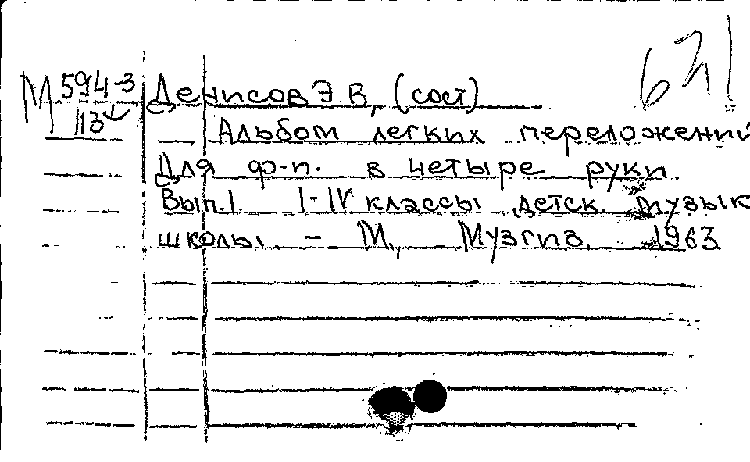 621
М 594-3 Денисов Э В, (сост)
13
Альбом легких переложений
Для ф-п. в четыре руки
Вып.1 I-IV классы детск. музык
школы. - М, Музгиз, 1963